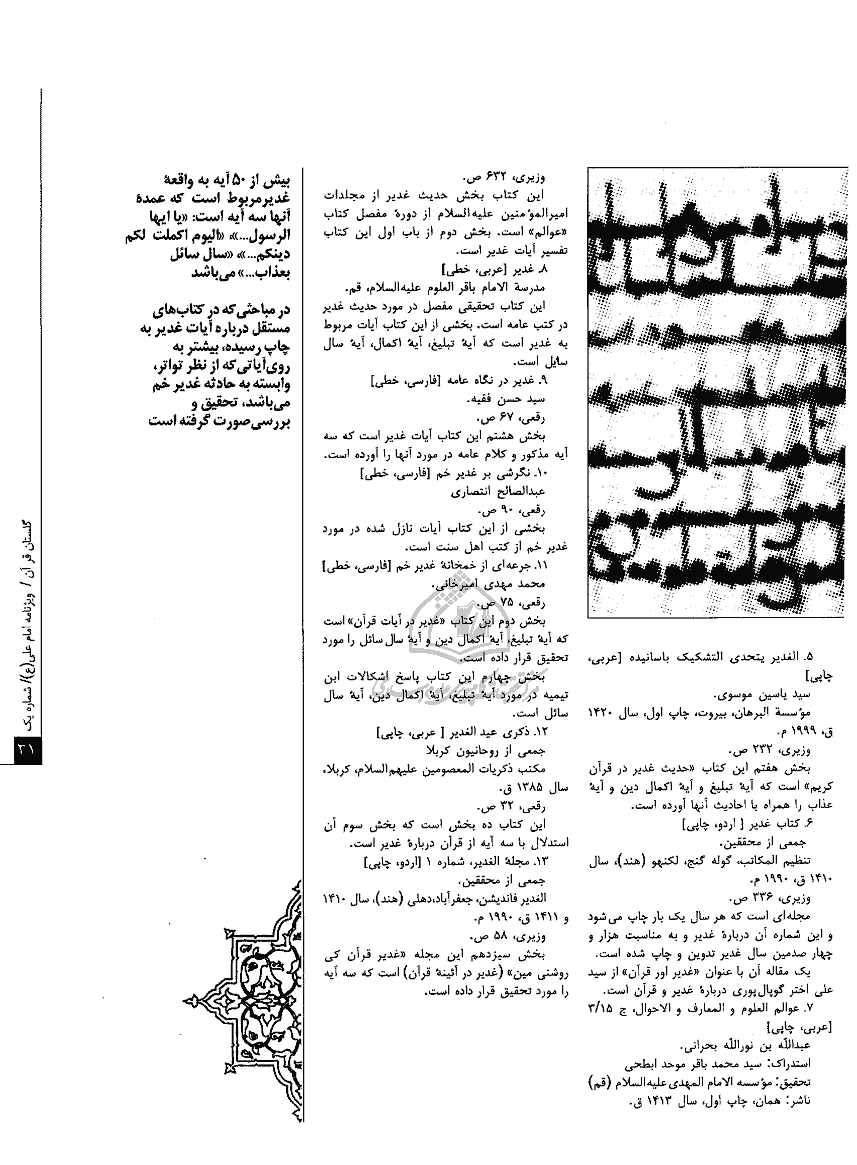 ۵. الغدیر یتحدی التشکیک باسانیده [عربی،
چاپی]
سید یاسین موسوی.
مؤسسة البرهان، بیروت، چاپ اول، سال ۱۴۲۰
ق، ۱۹۹۹ م.
وزیری، ۲۳۲ ص.
بخش هفتم این کتاب «حدیث غدیر در قرآن
کریم» است که آیۀ تبلیغ و آیۀ اکمال دین و آیۀ
عذاب را همراه با احادیث آنها آورده است.
۶. کتاب غدیر [ اردو، چاپی]
جمعی از محققین.
تنظیم المکاتب، گوله گنج، لکنهو (هند)، سال
۱۴۱۰ ق، ۱۹۹۰ م.
وزیری، ۳۳۶ ص.
مجله‌ای است که هر سال یک بار چاپ می‌شود
و این شماره آن دربارۀ غدیر و به مناسبت هزار و
چهار صدمین سال غدیر تدوین و چاپ شده است.
یک مقاله آن با عنوان «غدیر اور قرآن» از سید
علی اختر گوپال‌پوری دربارۀ غدیر و قرآن است.
۷. عوالم العلوم و المعارف و الاحوال، ج ۳/۱۵
[عربی، چاپی]
عبدالله بن نورالله بحرانی.
استدراک: سید محمد باقر موحد ابطحی
تحقیق: مؤسسه الامام المهدی علیه‌السلام (قم)
ناشر: همان، چاپ اول، سال ۱۴۱۳ ق.
وزیری، ۶۳۲ ص.
این کتاب بخش حدیث غدیر از مجلدات
امیرالمؤمنین علیه‌السلام از دورۀ مفصل کتاب
«عوالم» است. بخش دوم از باب اول این کتاب
تفسیر آیات غدیر است.
۸. غدیر [عربی، خطی]
مدرسة الامام باقر العلوم علیه‌السلام، قم.
این کتاب تحقیقی مفصل در مورد حدیث غدیر
در کتب عامه است. بخشی از این کتاب آیات مربوط
به غدیر است که آیۀ تبلیغ، آیۀ اکمال، آیۀ سال
سایل است.
۹. غدیر در نگاه عامه [فارسی، خطی]
سید حسن فقیه.
رقعی، ۶۷ ص.
بخش هشتم این کتاب آیات غدیر است که سه
آیه مذکور و کلام عامه در مورد آنها را آورده است.
۱۰. نگرشی بر غدیر خم [فارسی، خطی]
عبدالصالح انتصاری
رقعی، ۹۰ ص.
بخشی از این کتاب آیات نازل شده در مورد
غدیر خم از کتب اهل سنت است.
۱۱. جرعه‌ای از خمخانۀ غدیر خم [فارسی، خطی]
محمد مهدی امیرخانی.
رقعی، ۷۵ ص.
بخش دوم این کتاب «غدیر در آیات قرآن» است
که آیۀ تبلیغ، آیۀ اکمال دین و آیۀ سال سائل را مورد
تحقیق قرار داده است.
بخش چهارم این کتاب پاسخ اشکالات ابن
تیمیه در مورد آیۀ تبلیغ، آیۀ اکمال دین، آیۀ سال
سائل است.
۱۲. ذکری عید الغدیر [ عربی، چاپی]
جمعی از روحانیون کربلا
مکتب ذکریات المعصومین علیهم‌السلام، کربلا،
سال ۱۳۸۵ ق.
رقعی، ۳۲ ص.
این کتاب ده بخش است که بخش سوم آن
استدلال با سه آیه از قرآن دربارۀ غدیر است.
۱۳. مجلۀ الغدیر، شماره ۱ [اردو، چاپی]
جمعی از محققین.
الغدیر فاندیشن، جعفرآباد،دهلی (هند)، سال ۱۴۱۰
و ۱۴۱۱ ق، ۱۹۹۰ م.
وزیری، ۵۸ ص.
بخش سیزدهم این مجله «غدیر قرآن کی
روشنی مین» (غدیر در آئینۀ قرآن) است که سه آیه
را مورد تحقیق قرار داده است.
بیش از ۵۰ آیه به واقعۀ
غدیرمربوط است که عمدۀ
آنها سه آیه است: «یا ایها
الرسول...»، «الیوم اکملت لکم
دینکم...»، «سال سائل
بعذاب...» می‌باشد
در مباحثی‌که در کتاب‌های
مستقل درباره آیات غدیر به
چاپ رسیده، بیشتر به
روی‌آیاتی‌که از نظر تواتر،
وابسته به حادثه غدیر خم
می‌باشد، تحقیق و
بررسی‌صورت گرفته است
گلستان قرآن / ویژنامه امام علی(ع)/ شماره یک
۳۱